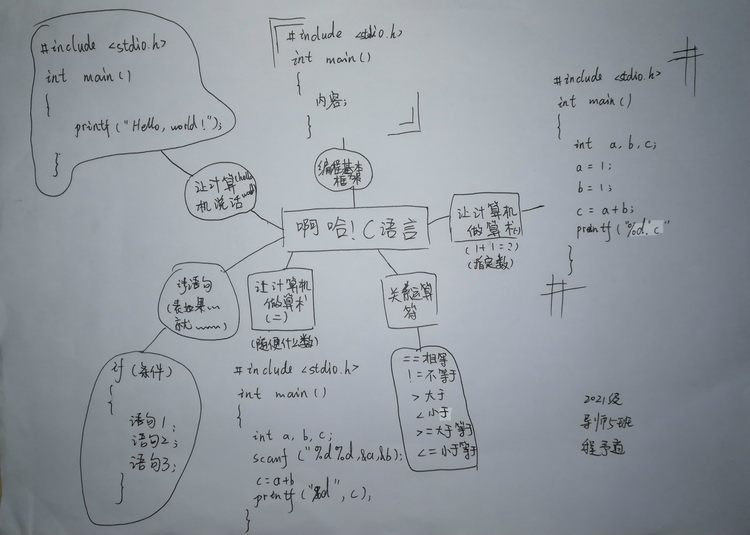 #include <stdio.h>
int main()
{
printf("Hello, world!");
}
#include <stdio.h>
int main()
{
内容;
}
#include <stdio.h>
int main()
{
int a, b, c;
a = 1;
b = 1;
c = a+b;
printf("%d",c
}
让计算(hello
机说话
编程基本
框架
啊哈!C语言
让计算机
做算术(一)
(1+1=2)
(指定数)
语句
(表如果……
就……)
让计算机
做算术
(二)
(随便什么数)
关系运算
符
if (条件)
{
语句1;
语句2;
语句3;
}
#include <stdio.h>
int main()
{
int a, b, c;
scanf("%d%d,&a,&b);
c=a+b
printf("%d", c);
}
==相等
!=不等于
>大于
<小于
>=大于等于
<=小于等于
2021级
导师5班
程予道